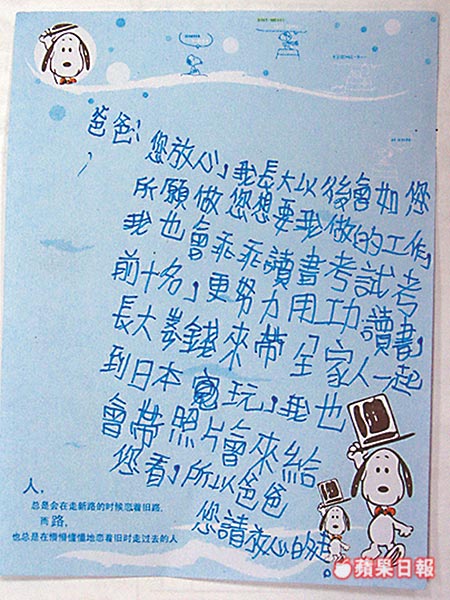 爸爸:
您放心,我長大以後會如您
所願做您想要我做的工作,
我也會乖乖讀書考試考
前十名,更努力用功讀書,
長大賺錢來帶全家人一起
到日本玩,我也
會帶照片會來給
您看,所以爸爸
您請放心的走。
人,
总是会在走新路的时候恋着旧路,
而路,
也总是在慢慢懂懂地恋着旧时走过去的人
蘋果日報